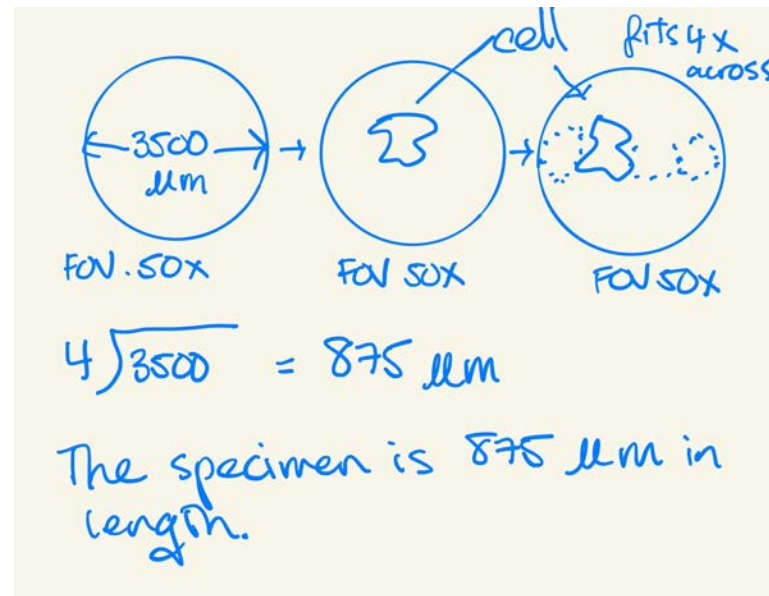 cell
fits 4x
across
3500
µm
FOV. 50X
FOV 50X
FOV 50X
4)3500 = 875 µm
The specimen is 875 µm in
length.